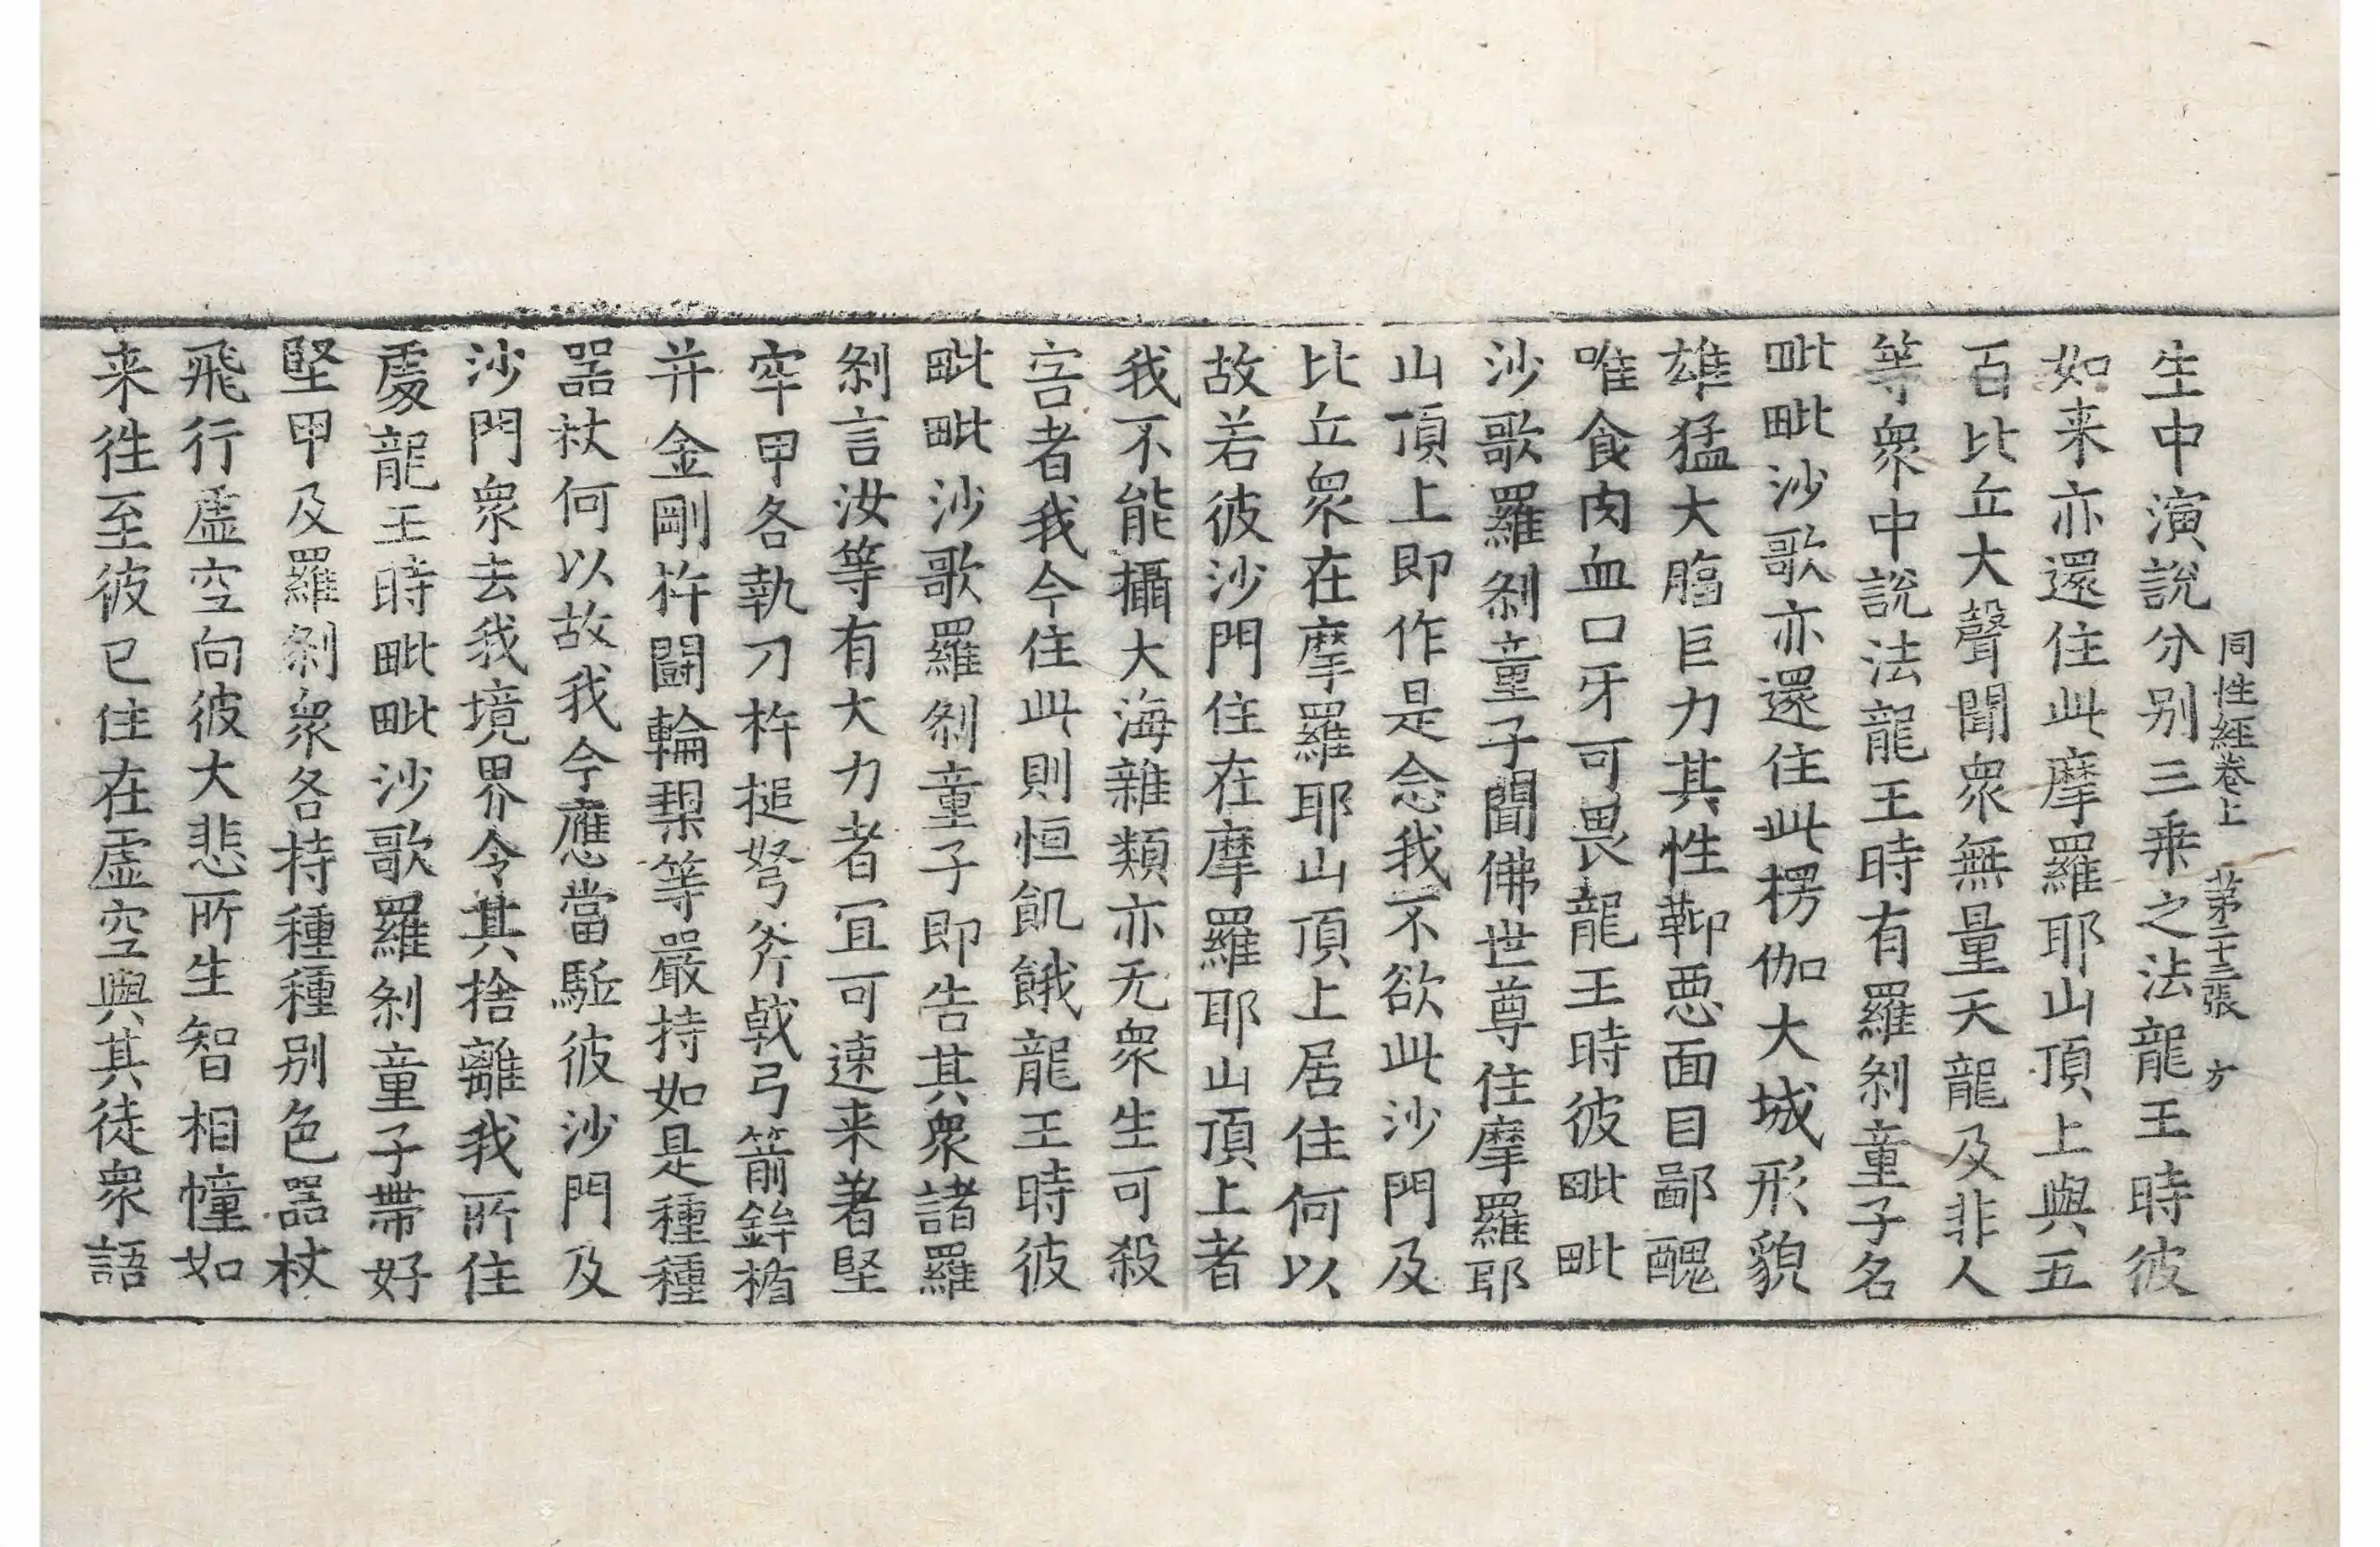 生中演說分別三乗之法龍王時彼
同性經卷上 苐二十三張 方
如来亦還住此摩羅耶山頂上與五
百比丘大聲聞衆無量天龍及非人
等衆中說法龍王時有羅剎童子名
毗毗沙歌亦還住此楞伽大城形貌
雄猛大䐡巨力其性鞕惡面目鄙醜
唯食肉血口牙可畏龍王時彼毗毗
沙歌羅剎童子聞佛世尊住摩羅耶
山頂上即作是念我不欲此沙門及
比丘衆在摩羅耶山頂上居住何以
故若彼沙門住在摩羅耶山頂上者
我不能攝大海雜類亦无衆生可殺
害者我今住此則恒飢餓龍王時彼
毗毗沙歌羅剎童子即告其衆諸羅
剎言汝等有大力者冝可速来著堅
牢甲各執刀杵搥弩斧戟弓箭鉾楯
并金剛杵鬪輪槊等嚴持如是種種
器杖何以故我今應當駈彼沙門及
沙門衆去我境界令其捨離我所住
處龍王時毗毗沙歌羅剎童子帶好
堅甲及羅剎衆各持種種别色器杖
飛行虛空向彼大悲所生智相幢如
来徃至彼已住在虛空與其徒衆語